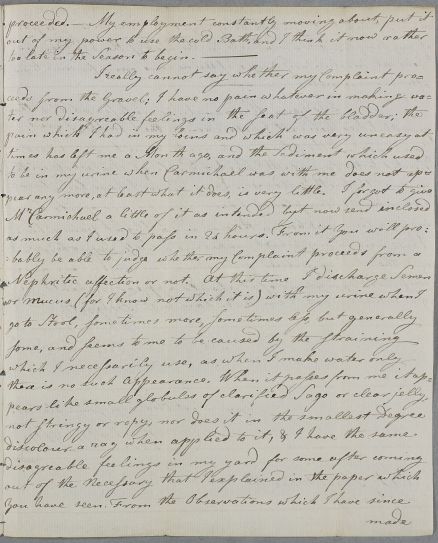 proceeded. — My employment constantly moving about, put it
out of my power to use the cold Bath, and I think it now rather
too late in the Season to begin. ———
I really cannot say whether my Complaint pro-
ceeds from the Gravel; I have no pain whatever in making wa-
ter nor disagreable feelings in the seat of the bladder; the
pain which I had in my loins and which was very uneasy at
times has left me a Month ago, and the sediment which used
to be in my urine when Carmichael was with me does not ap-
pear any more, at least what it does, is very little. I forgot to give
Mr Carmichael a little of it as intended but now send inclosed
as much as I used to pass in 24 hours. From it You will pro-
-bably be able to judge whether my Complaint proceeds from a
Nephritic affection or not. At this time I discharge Semen
or Mucus (for I know not which it is) with my urine when I
go to Stool, sometimes more, sometimes less but generally
some, and seems to me to be caused by the straining
which I necessarily use, as when I make water only
there is no such Appearance. When it passes from me it ap-
pears like small globules of clarified Sago or clear jelly,
not stringy or ropy, nor does it in the smallest degree
discolour a rag when applied to it, & I have the same
disagreable feelings in my yard for some after coming
out of the Necessary that I explained in the paper which
You have seen. From the Observations which I have since
made